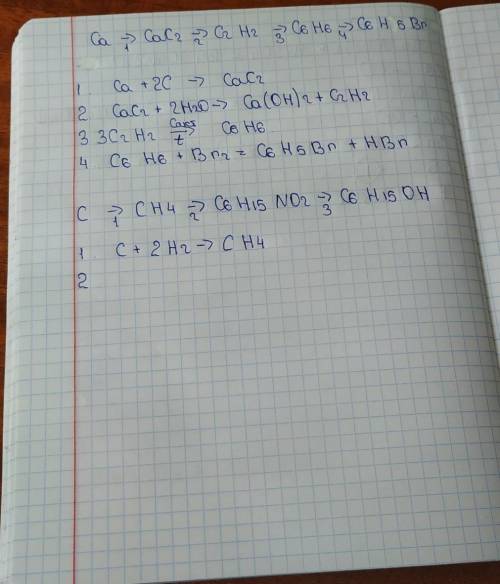 Ca →1 CaC2 →2 C2H2 →3 C6H6 →4 C6H5Bn
1 Ca + 2C → CaC2
2 CaC2 + 2H2O → Ca(OH)2 + C2H2
3 3C2H2 →t C6H6
4 C6H6 + Bn2 = C6H5Bn + HBn
C →1 CH4 →2 C6H15NO2 →3 C6H15OH
1 C + 2H2 → CH4
2